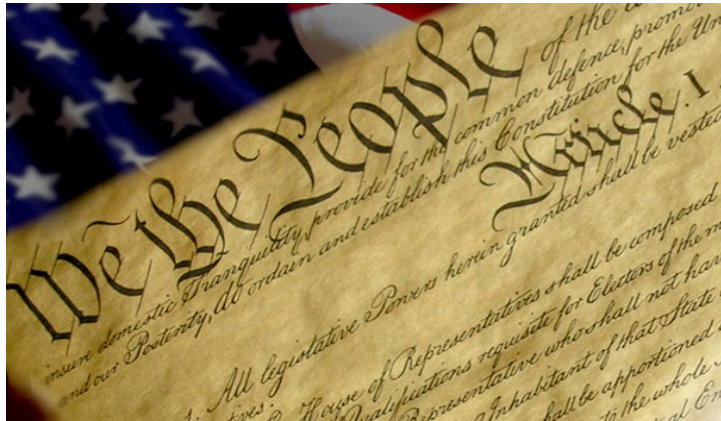 We the People of the
insure domestic Tranquility, provide for the common defence, promo
and our Posterity, do ordain and establish this Constitution for the Un
Article. I.
All legislative Powers herein granted shall be vested
House of Representatives shall be composed
Qualifications requisite for Electors of the m
Representative who shall not hav
Inhabitant of that State
shall be apportioned
to the whole